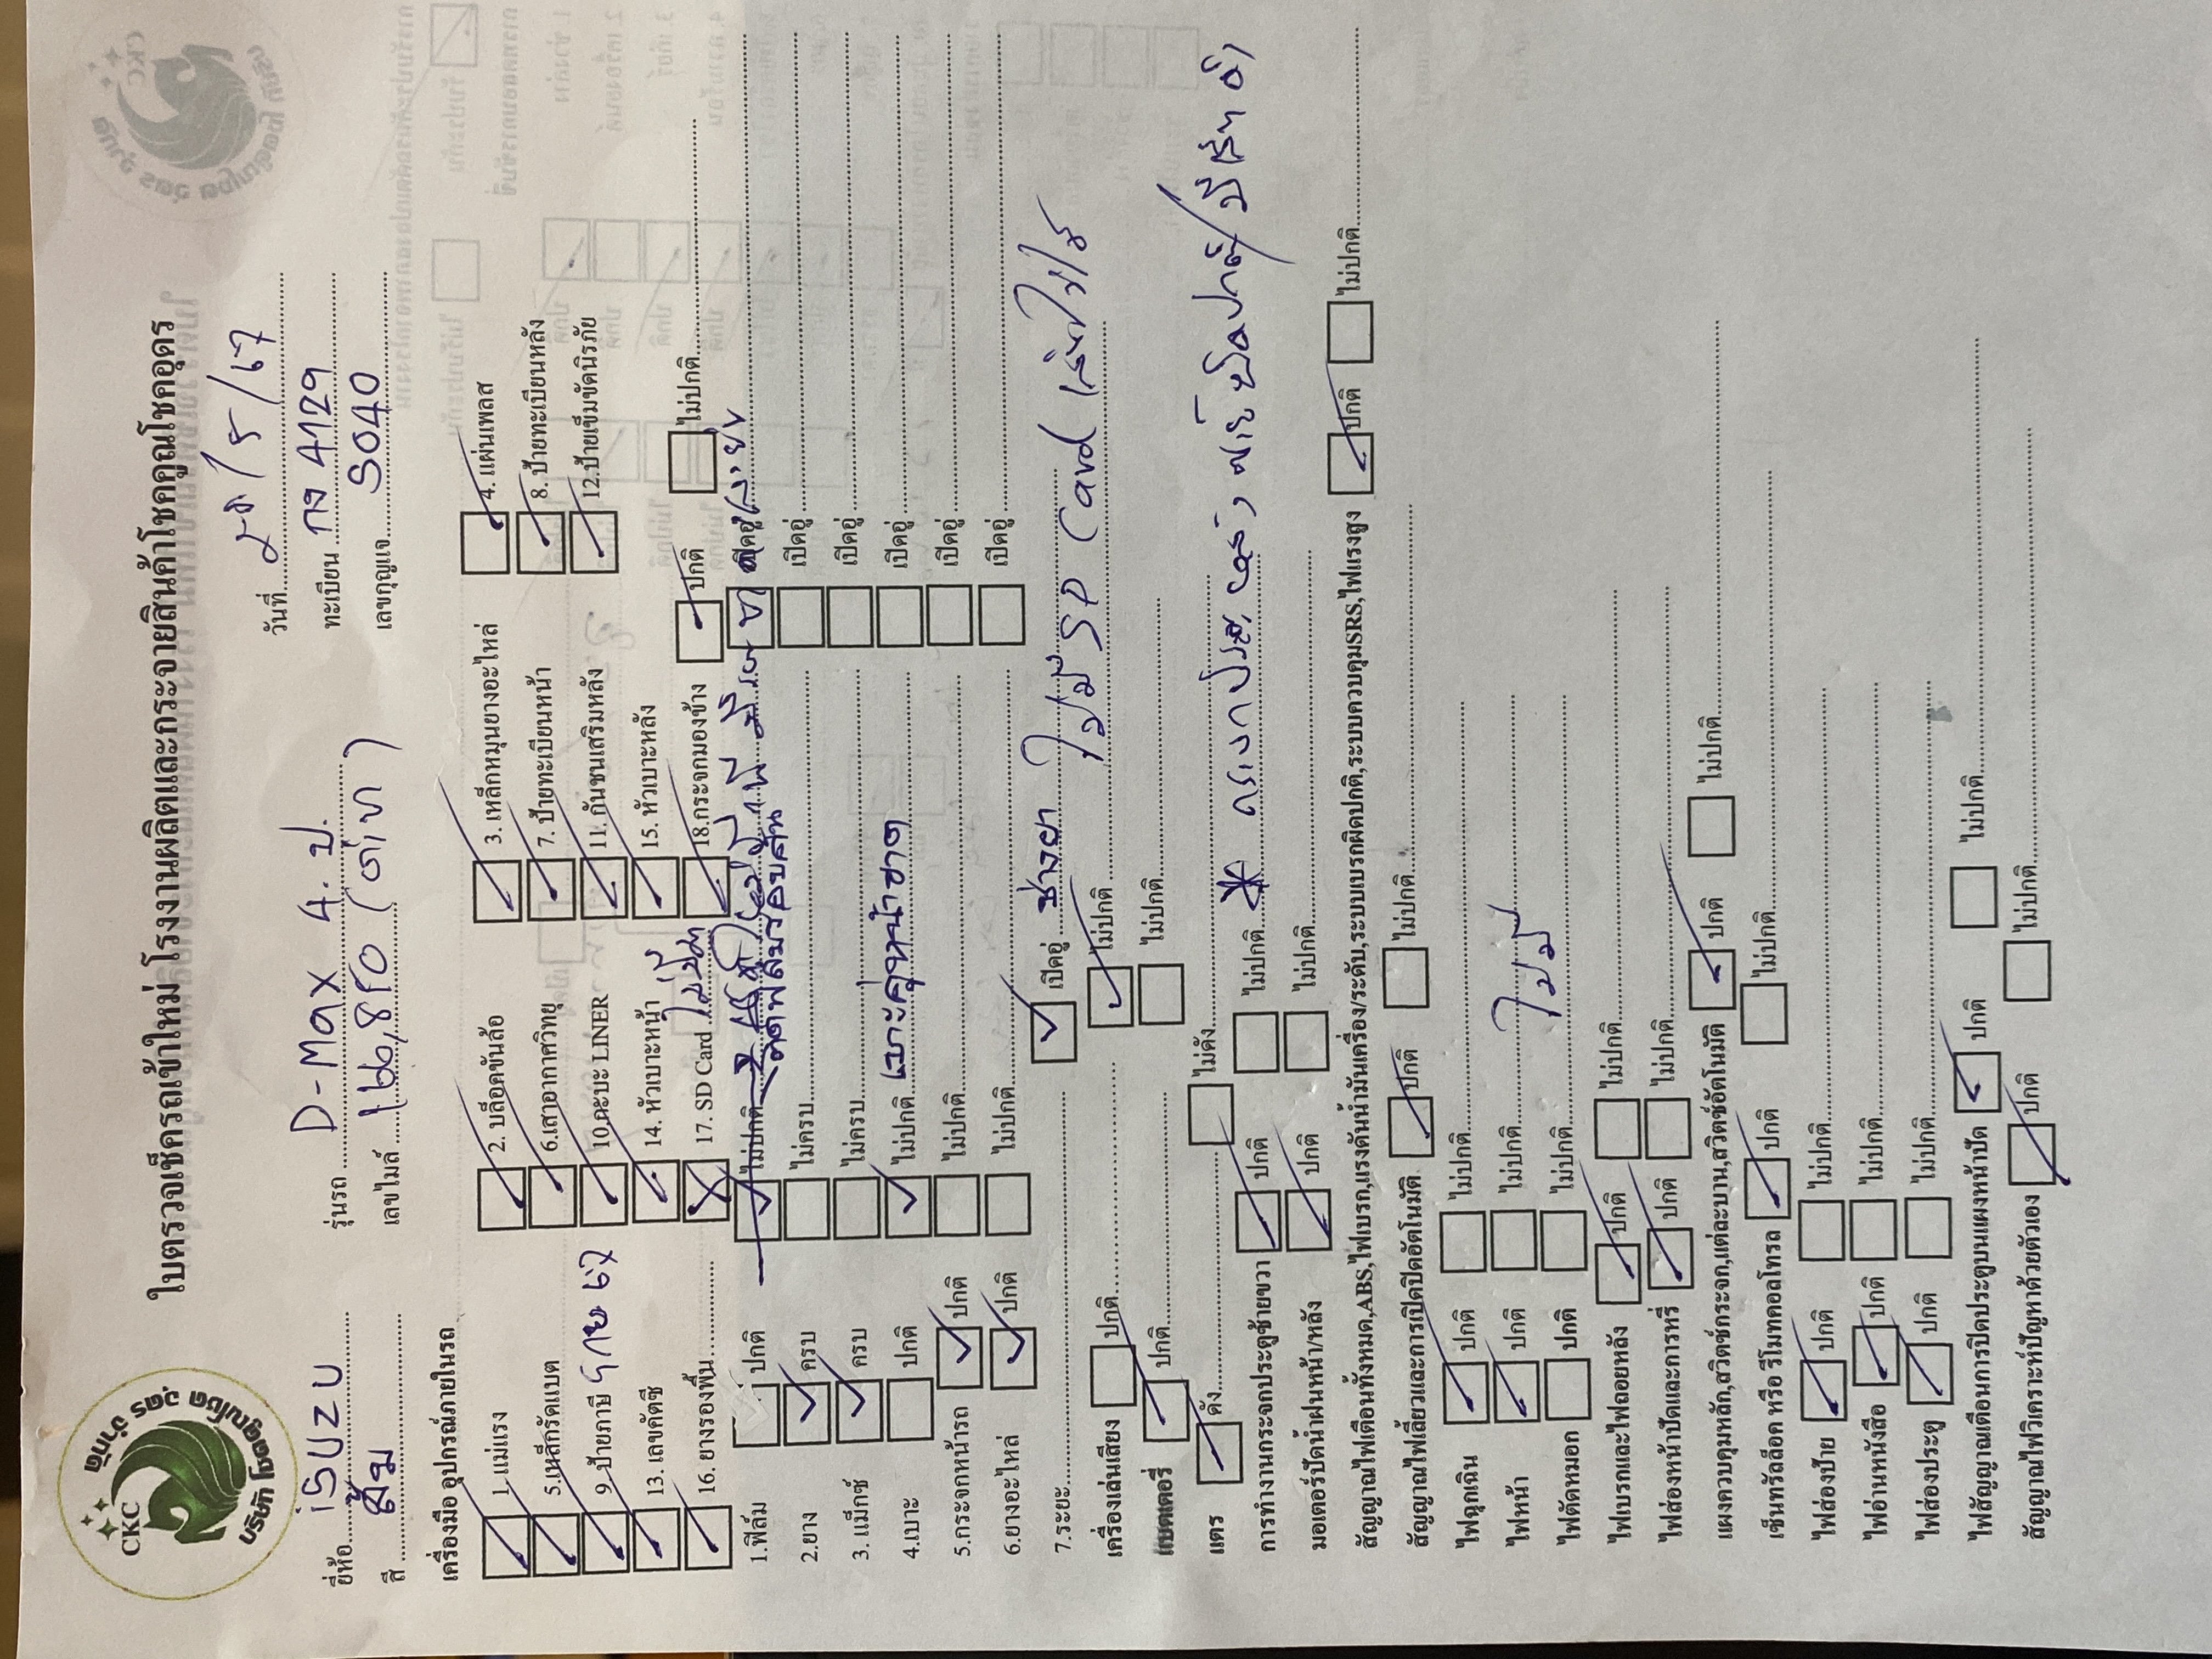 CKC
บริษัท โชคคูณโชค อุดร จำกัด
ใบตรวจเช็ครถเข้าใหม่ โรงงานผลิตและกระจายสินค้าโชคคูณโชคอุดร
วันที่ /5/67
ยี่ห้อ ISUZU รุ่นรถ D-Max 4.ป. ทะเบียน กจ 4129
สี ส้ม เลขไมล์ 166,850 เลขกุญแจ S040
เครื่องมือ อุปกรณ์ภายในรถ
1. แม่แรง 2. บล็อคขันล้อ 3. เหล็กหมุนยางอะไหล่ 4. แผ่นเพลส
5.เหล็กรัดแบต 6.เสาอากาศวิทยุ 7. ป้ายทะเบียนหน้า 8. ป้ายทะเบียนหลัง
9. ป้ายภาษี 67 10.กะบะ LINER 11. กันชนเสริมหลัง 12.ป้ายเข็มขัดนิรภัย
13. เลขคัตซี 14. หัวเบาะหน้า 15. หัวเบาะหลัง
16. ยางรองพื้น 17. SD Card ไม่มี 18.กระจกมองข้าง ปกติ ไม่ปกติ
1.ฟิล์ม ปกติ ไม่ปกติ
ติดฟิล์มรอบคัน
2.ยาง ครบ ไม่ครบ เปิดอู่
3. แม็กซ์ ครบ ไม่ครบ เปิดอู่
4.เบาะ ปกติ ไม่ปกติ เบาะคู่หน้าขาด เปิดอู่
5.กระจกหน้ารถ ปกติ ไม่ปกติ เปิดอู่
6.ยางอะไหล่ ปกติ ไม่ปกติ เปิดอู่
7.ระยะ เปิดอู่ ช่างยา
เครื่องเล่นเสียง ปกติ ไม่ปกติ ไม่มี SD Card
แบตเตอรี่ ปกติ ไม่ปกติ
แตร ดัง ไม่ดัง
การทำงานกระจกประตูซ้ายขวา ปกติ ไม่ปกติ
มอเตอร์ปัดน้ำฝนหน้า/หลัง ปกติ ไม่ปกติ
สัญญาณไฟเตือนทั้งหมด,ABS,ไฟเบรก,แรงดันน้ำมันเครื่อง/ระดับ,ระบบเบรกผิดปกติ,ระบบควบคุมSRS,ไฟแรงสูง ปกติ ไม่ปกติ
สัญญาณไฟเลี้ยวและการเปิดปิดอัตโนมัติ ปกติ ไม่ปกติ
ไฟฉุกเฉิน ปกติ ไม่ปกติ
ไฟหน้า ปกติ ไม่ปกติ
ไฟตัดหมอก ปกติ ไม่ปกติ ไม่มี
ไฟเบรกและไฟลอยหลัง ปกติ ไม่ปกติ
ไฟส่องหน้าปัดและการหรี่ ปกติ ไม่ปกติ
แผงควบคุมหลัก,สวิตซ์กระจก,แต่ละบาน,สวิตซ์อัตโนมัติ ปกติ ไม่ปกติ
เซ็นทรัลล็อค หรือ รีโมทคอลโทรล ปกติ ไม่ปกติ
ไฟส่องป้าย ปกติ ไม่ปกติ
ไฟอ่านหนังสือ ปกติ ไม่ปกติ
ไฟส่องประตู ปกติ ไม่ปกติ
ไฟสัญญาณเตือนการปิดประตูบนแผงหน้าปัด ปกติ ไม่ปกติ
สัญญาณไฟวิเคราะห์ปัญหาด้วยตัวเอง ปกติ ไม่ปกติ